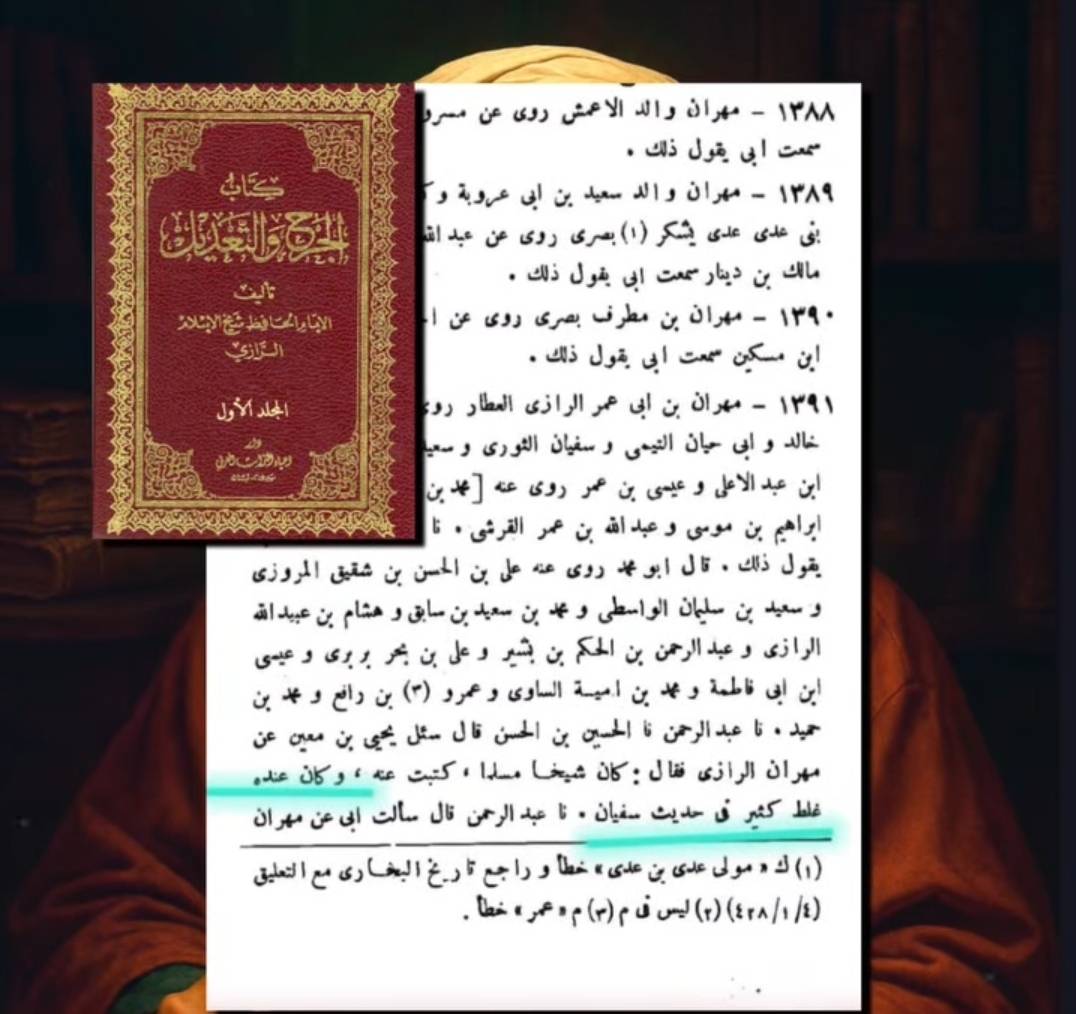 كتاب
الجرح والتعديل
تأليف
الإمام الحافظ شيخ الإسلام
الرازي
المجلد الأول
دار
إحياء التراث العربي
١٣٨٨ - مهران والد الاعمش روى عن مسرو
سمعت ابى يقول ذلك .
١٣٨٩ - مهران والد سعيد بن ابى عروبة و
بنى عدى عدى يشكر (١) بصرى روى عن عبد الله
مالك بن دينار سمعت ابى يقول ذلك .
١٣٩٠ - مهران بن مطرف بصرى روى عن
ابن مسكين سمعت ابى يقول ذلك .
١٣٩١ - مهران بن ابى عمر الرازى العطار روى
خالد و ابى حيان التيمى و سفيان الثورى و سعيد
ابن عبد الاعلى و عيسى بن عمر روى عنه [محمد بن
ابراهيم بن موسى و عبد الله بن عمر القرشى . نا
يقول ذلك . قال ابو محمد روى عنه على بن الحسن بن شقيق المروزى
و سعيد بن سليمان الواسطى و محمد بن سعيد بن سابق و هشام بن عبيد الله
الرازى و عبد الرحمن بن الحكم بن بشير و على بن بحر بن برى و عيسى
ابن ابى فاطمة و محمد بن اميسة الساوى و عمرو (٣) بن رافع و محمد بن
حميد . نا عبد الرحمن نا الحسين بن الحسن قال سئل يحيى بن معين عن
مهران الرازى فقال : كان شيخا مسلما ، كتبت عنه ، و كان عنده
غلط كثير فى حديث سفيان . نا عبد الرحمن قال سألت ابى عن مهران
(١) ك « مولى عدى بن عدى » خطأ و راجع تاريخ البخارى مع التعليق
(٤/١/٤٢٨) (٢) ليس فى م (٣) م « عمر » خطأ .